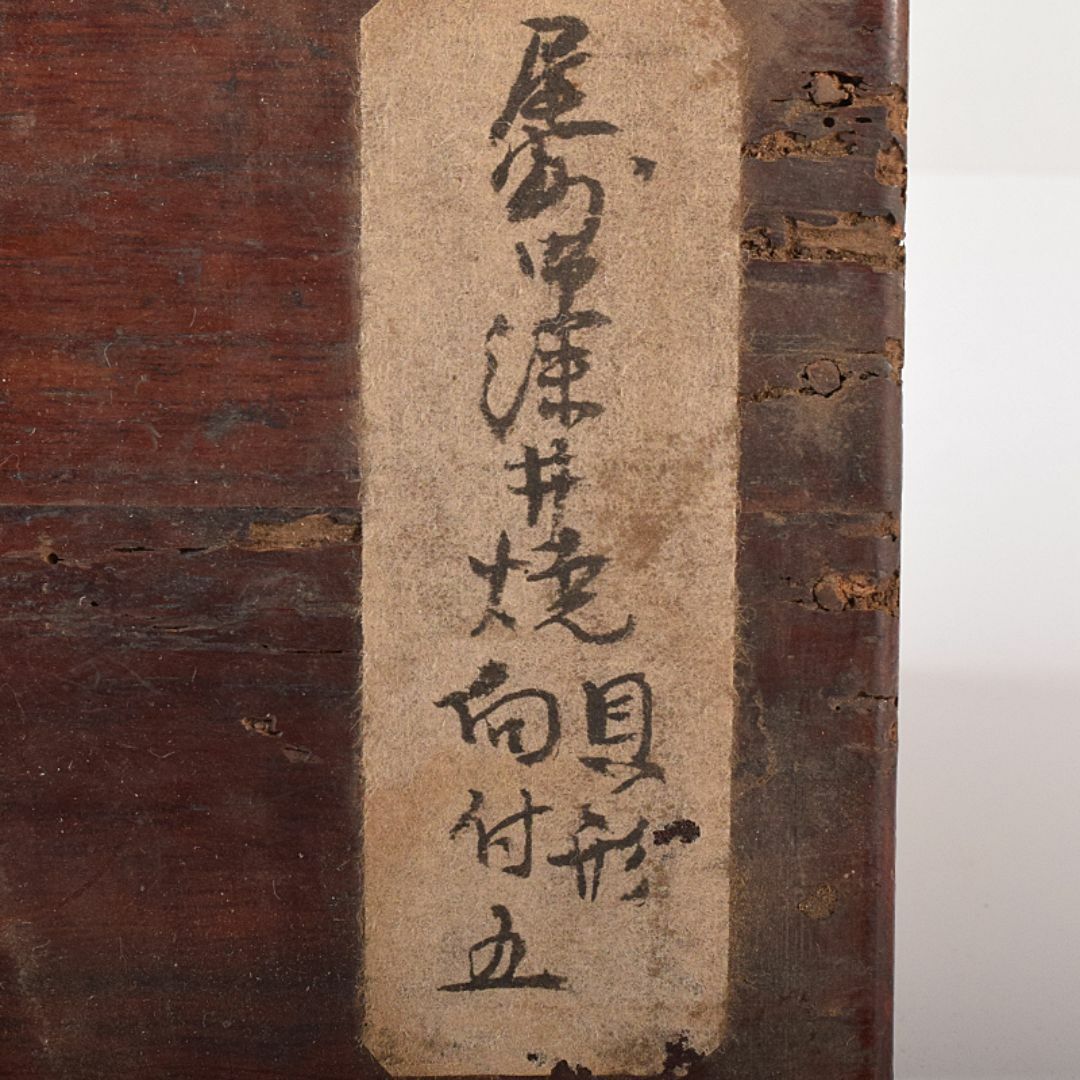 尾州深井焼
貝形
向付五